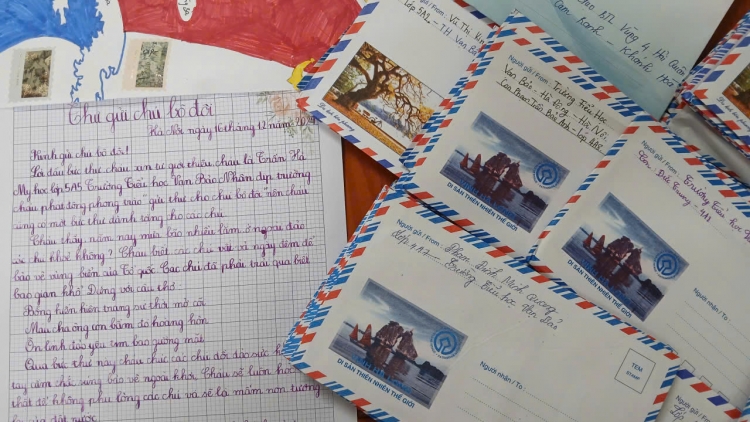 Thư gửi chú bộ đội
Hà Nội, ngày 16 tháng 12 năm
Kính gửi chú bộ đội!
Lá đầu bức thư cháu xin tự giới thiệu cháu là Trần Hà
My học lớp 5A5 Trường Tiểu học Văn Bảo. Nhân dịp trường
cháu phát động phong trào "gửi thư cho chú bộ đội" nên cháu
cũng có một bức thư dành tặng cho các chú.
Cháu thấy năm nay mưa bão nhiều lắm ở ngoài đảo
các chú khỏe không? Cháu biết các chú vất vả ngày đêm để
bảo vệ vùng biển của Tổ quốc. Các chú đã phải trải qua biết
bao gian khổ. Đúng với câu thơ:
Bóng hiên hiên trang sử thời mở cõi
Máu cha ông còn bầm đỏ hoàng hôn
linh đảo yêu em bao gương mặt
Qua bức thư này cháu chúc các chú dồi dào sức
tay cầm chắc súng bảo vệ ngoài khơi. Cháu sẽ luôn học
thật để không phụ lòng các chú và sẽ là mầm non tương
của đất nước.
Người gửi / From: Vũ Thị
Lớp 5A2 - TH Văn
DT Vùng 4 Hải Quân
Cam Ranh - Khánh Hòa
Người gửi / From: Trường Tiểu Học
Văn Bảo - Hà Đông - Hà Nội
Phan Trần Bảo Anh - Lớp 4A5
DI SẢN THIÊN NHIÊN THẾ GIỚI
Người gửi / From: Trường Tiểu học
4A1
DI SẢN THIÊN NHIÊN THẾ GIỚI
Người nhận / To:
Người gửi / From: Phạm Đình Minh Quang
Lớp 4A7 - Trường Tiểu học Văn Bảo
DI SẢN THIÊN NHIÊN THẾ GIỚI
Người nhận / To:
TEM
STAMP